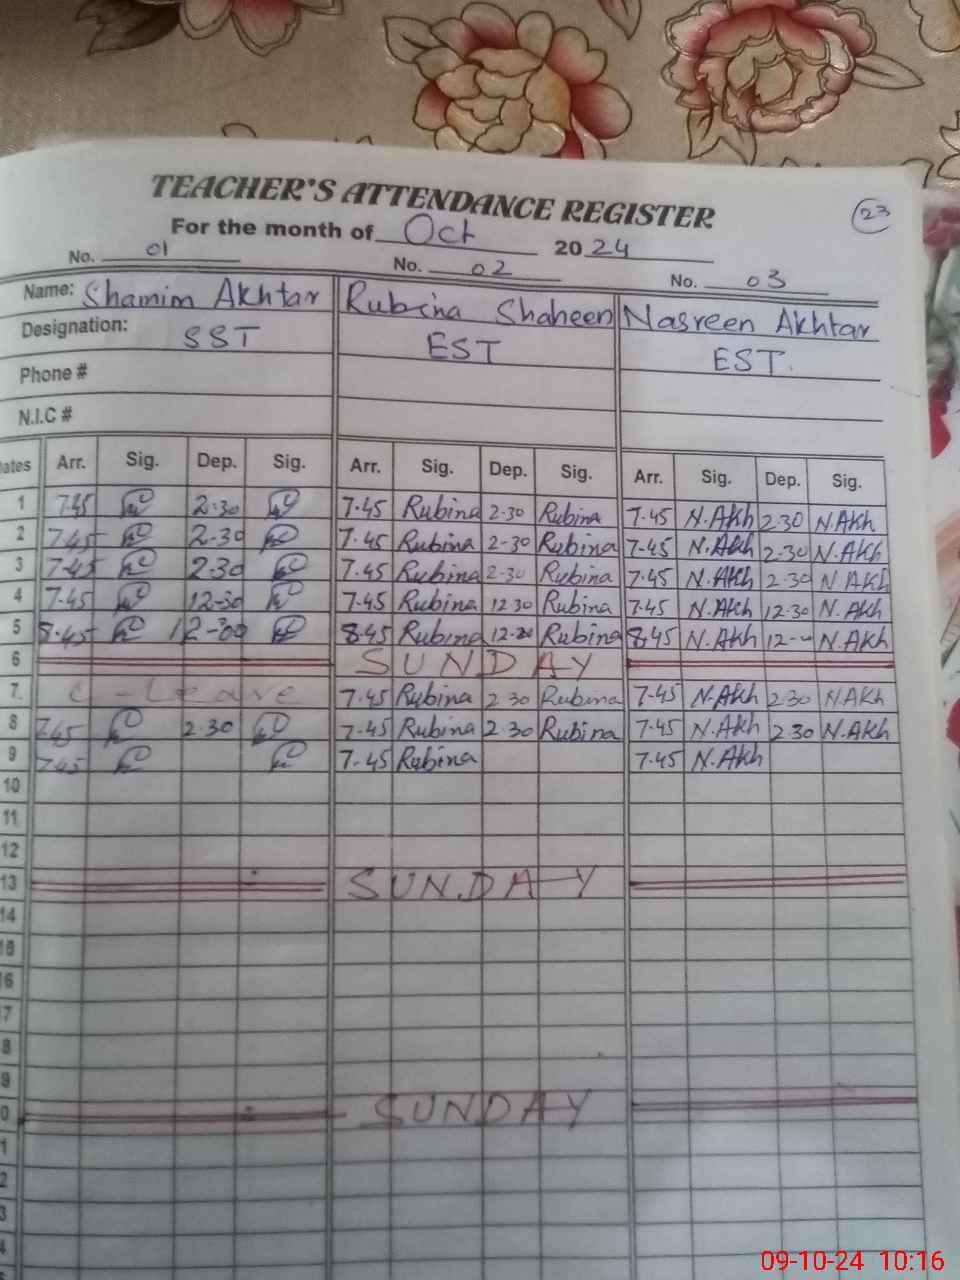 TEACHER'S ATTENDANCE REGISTER
23
For the month of Oct 2024
No. 01 No. 02 No. 03
Name: Shamim Akhtar Rubina Shaheen Nasreen Akhtar
Designation: SST EST EST.
Phone #
N.I.C #
ates Arr. Sig. Dep. Sig. Arr. Sig. Dep. Sig. Arr. Sig. Dep. Sig.
1 7.45 2.30 7.45 Rubina 2-30 Rubina 7.45 N.Akh 2.30 N.AKh
2 7.45 2.30 7.45 Rubina 2-30 Rubina 7-45 N.Akh 2.30 N.AKh
3 7.45 2.30 7.45 Rubina 2-30 Rubina 7.45 N.Akh 2.30 N AKh
4 7.45 12-30 7.45 Rubina 12 30 Rubina 7.45 N.Akh 12-30 N.AKh
5 8.45 12-00 8.45 Rubina Rubina 8.45 N.Akh 12-- N.AKh
6 SUNDAY
7. C-Leave 7.45 Rubina 2 30 Rubina 7.45 N.Akh 2.30 NAKh
8 7.45 2 30 7.45 Rubina 2 30 Rubina 7.45 N.Akh 2.30 N.AKh
9 7.45 7.45 Rubina 7.45 N.Akh
10
11
12
13 SUNDAY
14
15
6
7
8
9
0 SUNDAY
1
2
3
4
09-10-24 10:16